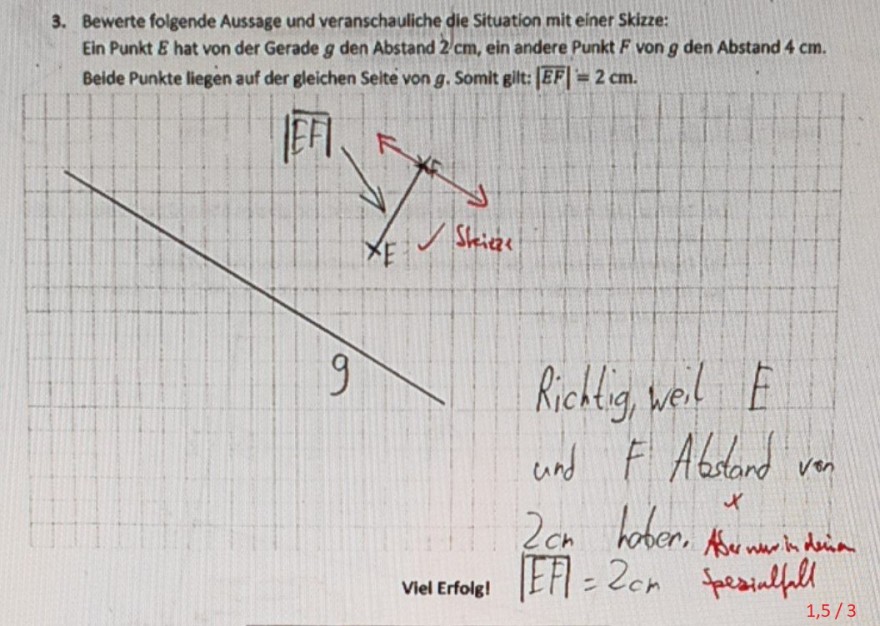 3. Bewerte folgende Aussage und veranschauliche die Situation mit einer Skizze:
Ein Punkt E hat von der Gerade g den Abstand 2 cm, ein andere Punkt F von g den Abstand 4 cm.
Beide Punkte liegen auf der gleichen Seite von g. Somit gilt: |EF| = 2 cm.
|EF|
F
E ✓ Skizze
g
Richtig, weil E
und F Abstand von
x
2cm haben. Aber nur in deinem
Viel Erfolg! |EF| = 2cm Spezialfall
1,5 / 3